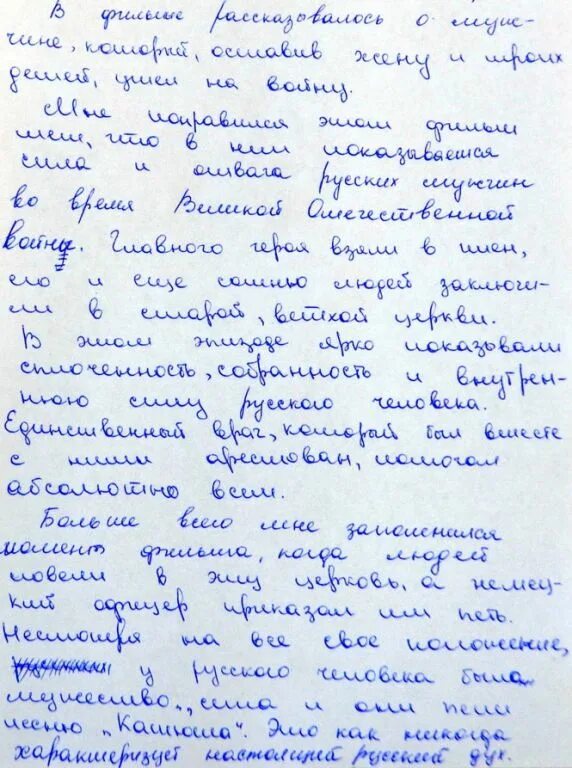 В фильме рассказывалось о муж-
чине, который, оставив жену и троих
детей, ушел на войну.
Мне понравился этот фильм
тем, что в нем показывается
сила и отвага русских мужчин
во время Великой Отечественной
Войны. Главного героя взяли в плен,
его и еще сотню людей заключи-
ли в старой, ветхой церкви.
В этом эпизоде ярко показывали
сплоченность, собранность и внутрен-
нюю силу русского человека.
Единственный врач, который был вместе
с ними арестован, помогал
абсолютно всем.
Больше всего мне запомнился
момент фильма, когда людей
повели в эту церковь, а немец-
кий офицер приказал им петь.
Несмотря на все свое положение,
у русского человека была
мужество, сила и они пели
песню "Катюша". Это как никогда
характеризует настоящий русский дух.